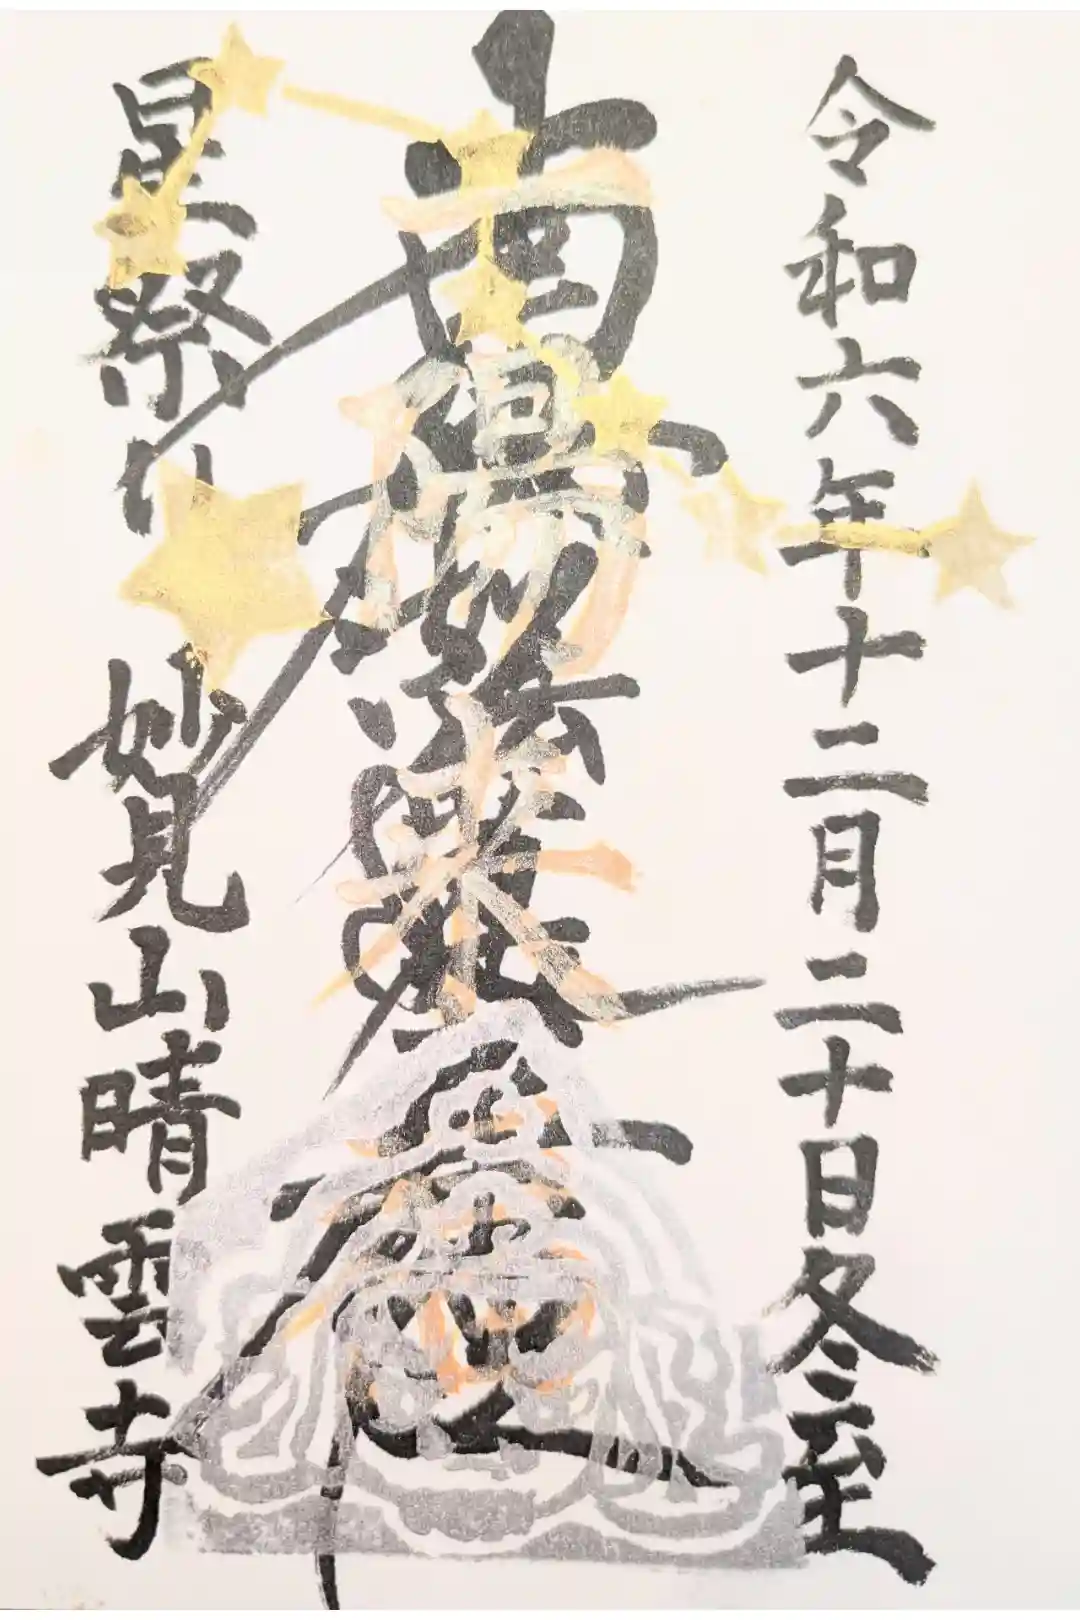 令和六年十二月二十日冬至
南無妙法蓮華経
一陽来復
星祭り 妙見山晴雲寺